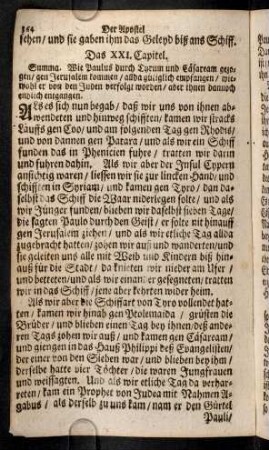 364 Der Apostel
sehen/ und sie gaben ihm das Geleyd biß ans Schiff.
Das XXI. Capitel.
Summa. Wie Paulus durch Tyrum und Cäsaream gezo-
gen/ gen Jerusalem kommen/ allda gütiglich empfangen/ wie-
wohl er von den Juden verfolgt worden/ aber ihnen dannoch
endlich entgangen.
ALs es sich nun begab/ daß wir uns von ihnen ab-
wendeten und hinweg schifften/ kamen wir stracks
Lauffs gen Coo/ und am folgenden Tag gen Rhodis/
und von dannen gen Patara/ und als wir ein Schiff
funden das in Phenicien fuhr/ tratten wir darin
und fuhren dahin. Als wir aber der Insul Cypern
ansichtig waren/ liessen wir sie zur lincken Hand/ und
schifften in Syriam/ und kamen gen Tyro/ dan da-
selbst das Schiff die Waar niderlegen solte/ und als
wir Jünger funden/ blieben wir daselbst sieben Tage/
die sagten Paulo durch den Geist/ er solte nit hinauff
gen Jerusalem ziehen/ und als wir etliche Tag allda
zugebracht hatten/ zohen wir auß und wanderten/ und
sie geleiten uns alle mit Weib und Kindern biß hin-
auß für die Stadt/ da knieten wir nieder am Ufer/
und betteten/ und als wir einander gesegneten/ tratten
wir in das Schiff/ jene aber kehrten wider heim.
Als wir aber die Schiffart von Tyro vollendet hat-
ten/ kamen wir hinab gen Ptolemaida/ grüsten die
Brüder/ und blieben einen Tag bey ihnen/ deß ande-
ren Tags zohen wir auß/ und kamen gen Cäsaream/
und giengen in das Hauß Philippi deß Evangelisten/
der einer von den Sieben war/ und blieben bey ihm/
derselbe hatte vier Töchter/ die waren Jungfrauen
und weissagten. Und als wir etliche Tag da verhar-
reten/ kam ein Prophet von Judea mit Nahmen A-
gabus/ als derselb zu uns kam/ nam er den Gürtel
Pauli/